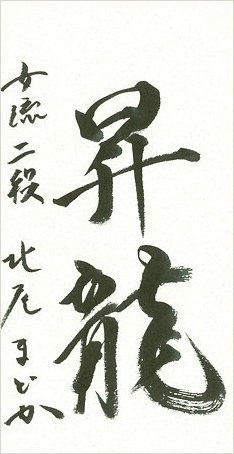 昇龍
女流二段 北尾まどか